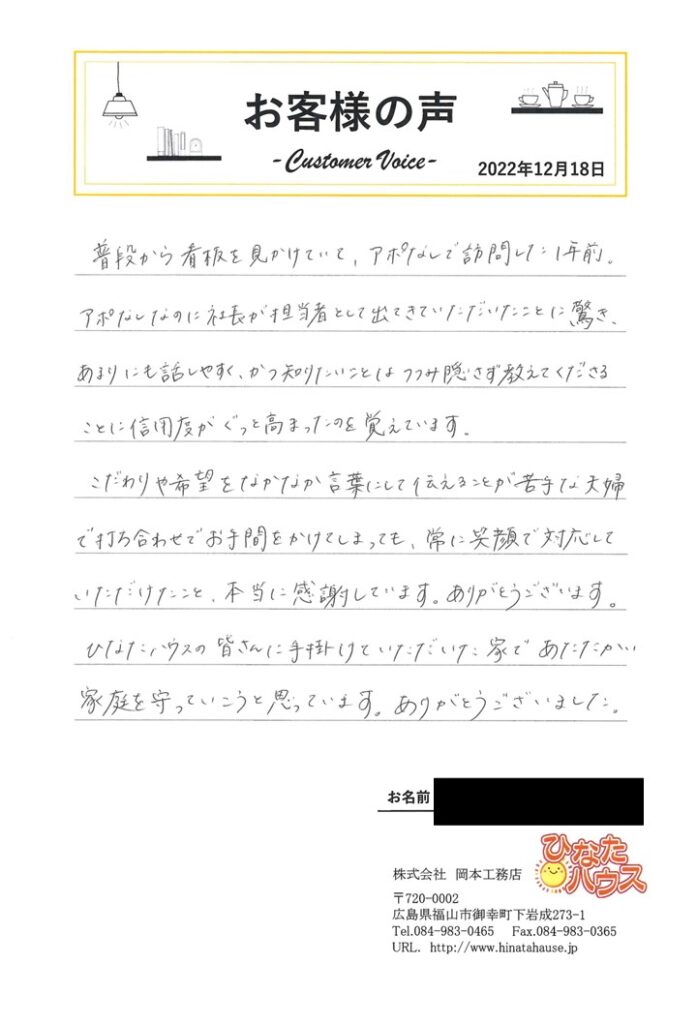 お客様の声
-Customer Voice-
2022年12月18日
普段から看板を見かけていて、アポなしで訪問した1年前。
アポなしなのに社長が担当者として出てきていただいたことに驚き、
あまりにも話しやすく、かつ知りたいことはつつみ隠さず教えてくださる
ことに信用度がぐっと高まったのを覚えています。
こだわりや希望をなかなか言葉にして伝えることが苦手な夫婦
で打ち合わせでお手間をかけてしまっても、常に笑顔で対応して
いただけたこと、本当に感謝しています。ありがとうございます。
ひなたハウスの皆さんに手掛けていただいた家であたたかい
家庭を守っていこうと思っています。ありがとうございました。
お名前
ひなた
ハウス
株式会社 岡本工務店
〒720-0002
広島県福山市御幸町下岩成273-1
Tel.084-983-0465 Fax.084-983-0365
URL. http://www.hinatahause.jp